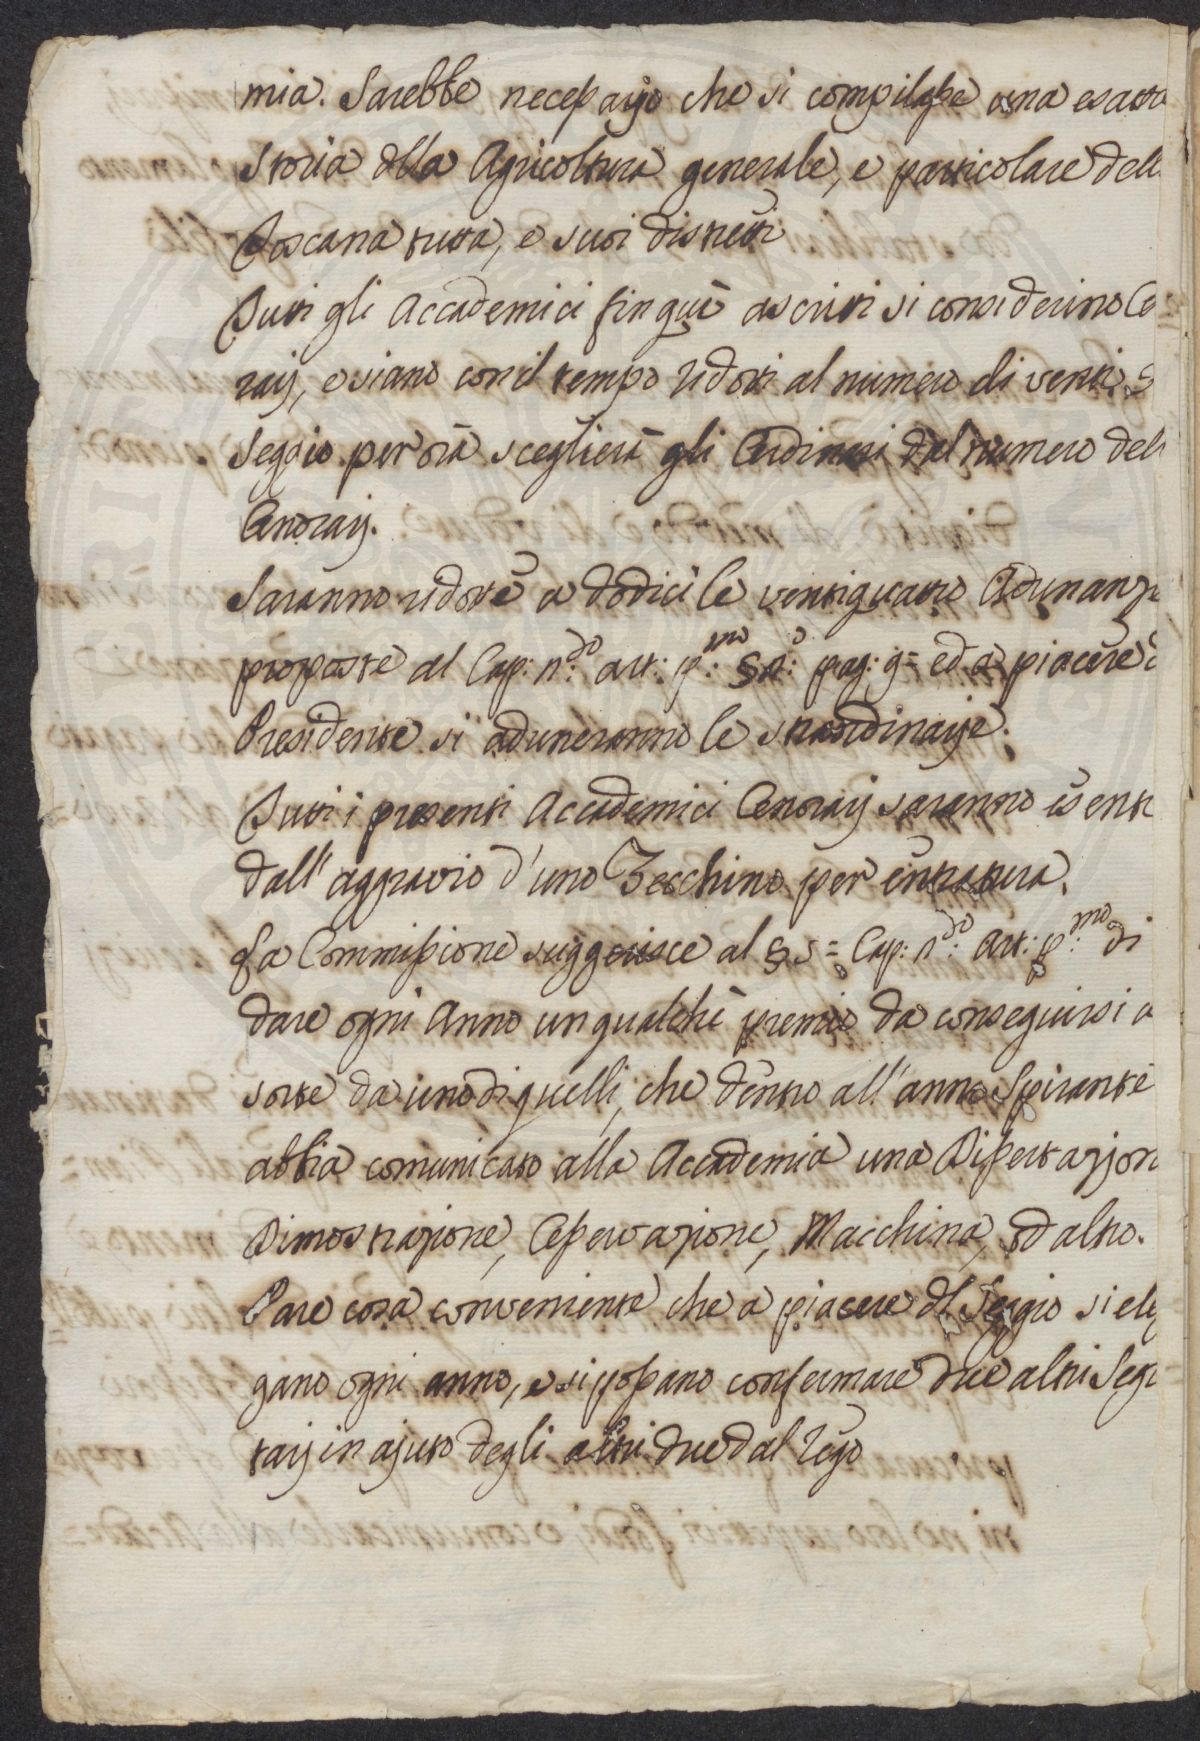 mia. Sarebbe necessario che si compilasse una esatta
Storia della Agricoltura generale, e particolare dell
Toscana tutta, e suoi distretti
Tutti gli Accademici fin quì ascritti si considerino O
rarj, e siano con il tempo ridotti al numero di venti, S
Seggio per ora sceglierà gli Ordinarj dal numero deli
Onorarj.
Saranno ridotte a dodici le ventiquattro Adunanze
proposte al Cap: n:do art: p:mo §n:o pag: 9= ed a piacere d
Presidente si aduneranno le straordinarje.
Tutti i presenti Accademici Onorarj saranno esenti
dall'aggravio d'uno Zecchino per entratura.
La Commissione suggerisce al § 5= Cap: n:do Art: p:mo di
dare ogni Anno un qualche premio da conseguirsi a
sorte da uno di quelli, che dentro all'anno spirante
abbia comunicato alla Accademia una Dissertazion
Dimostrazione, Osservazione, Macchina, od altro.
Pare cosa conveniente che a piacere del Seggio si eleg
gano ogni anno, e si possano confermare due altri Segre
tarj in ajuto degli altri due dal